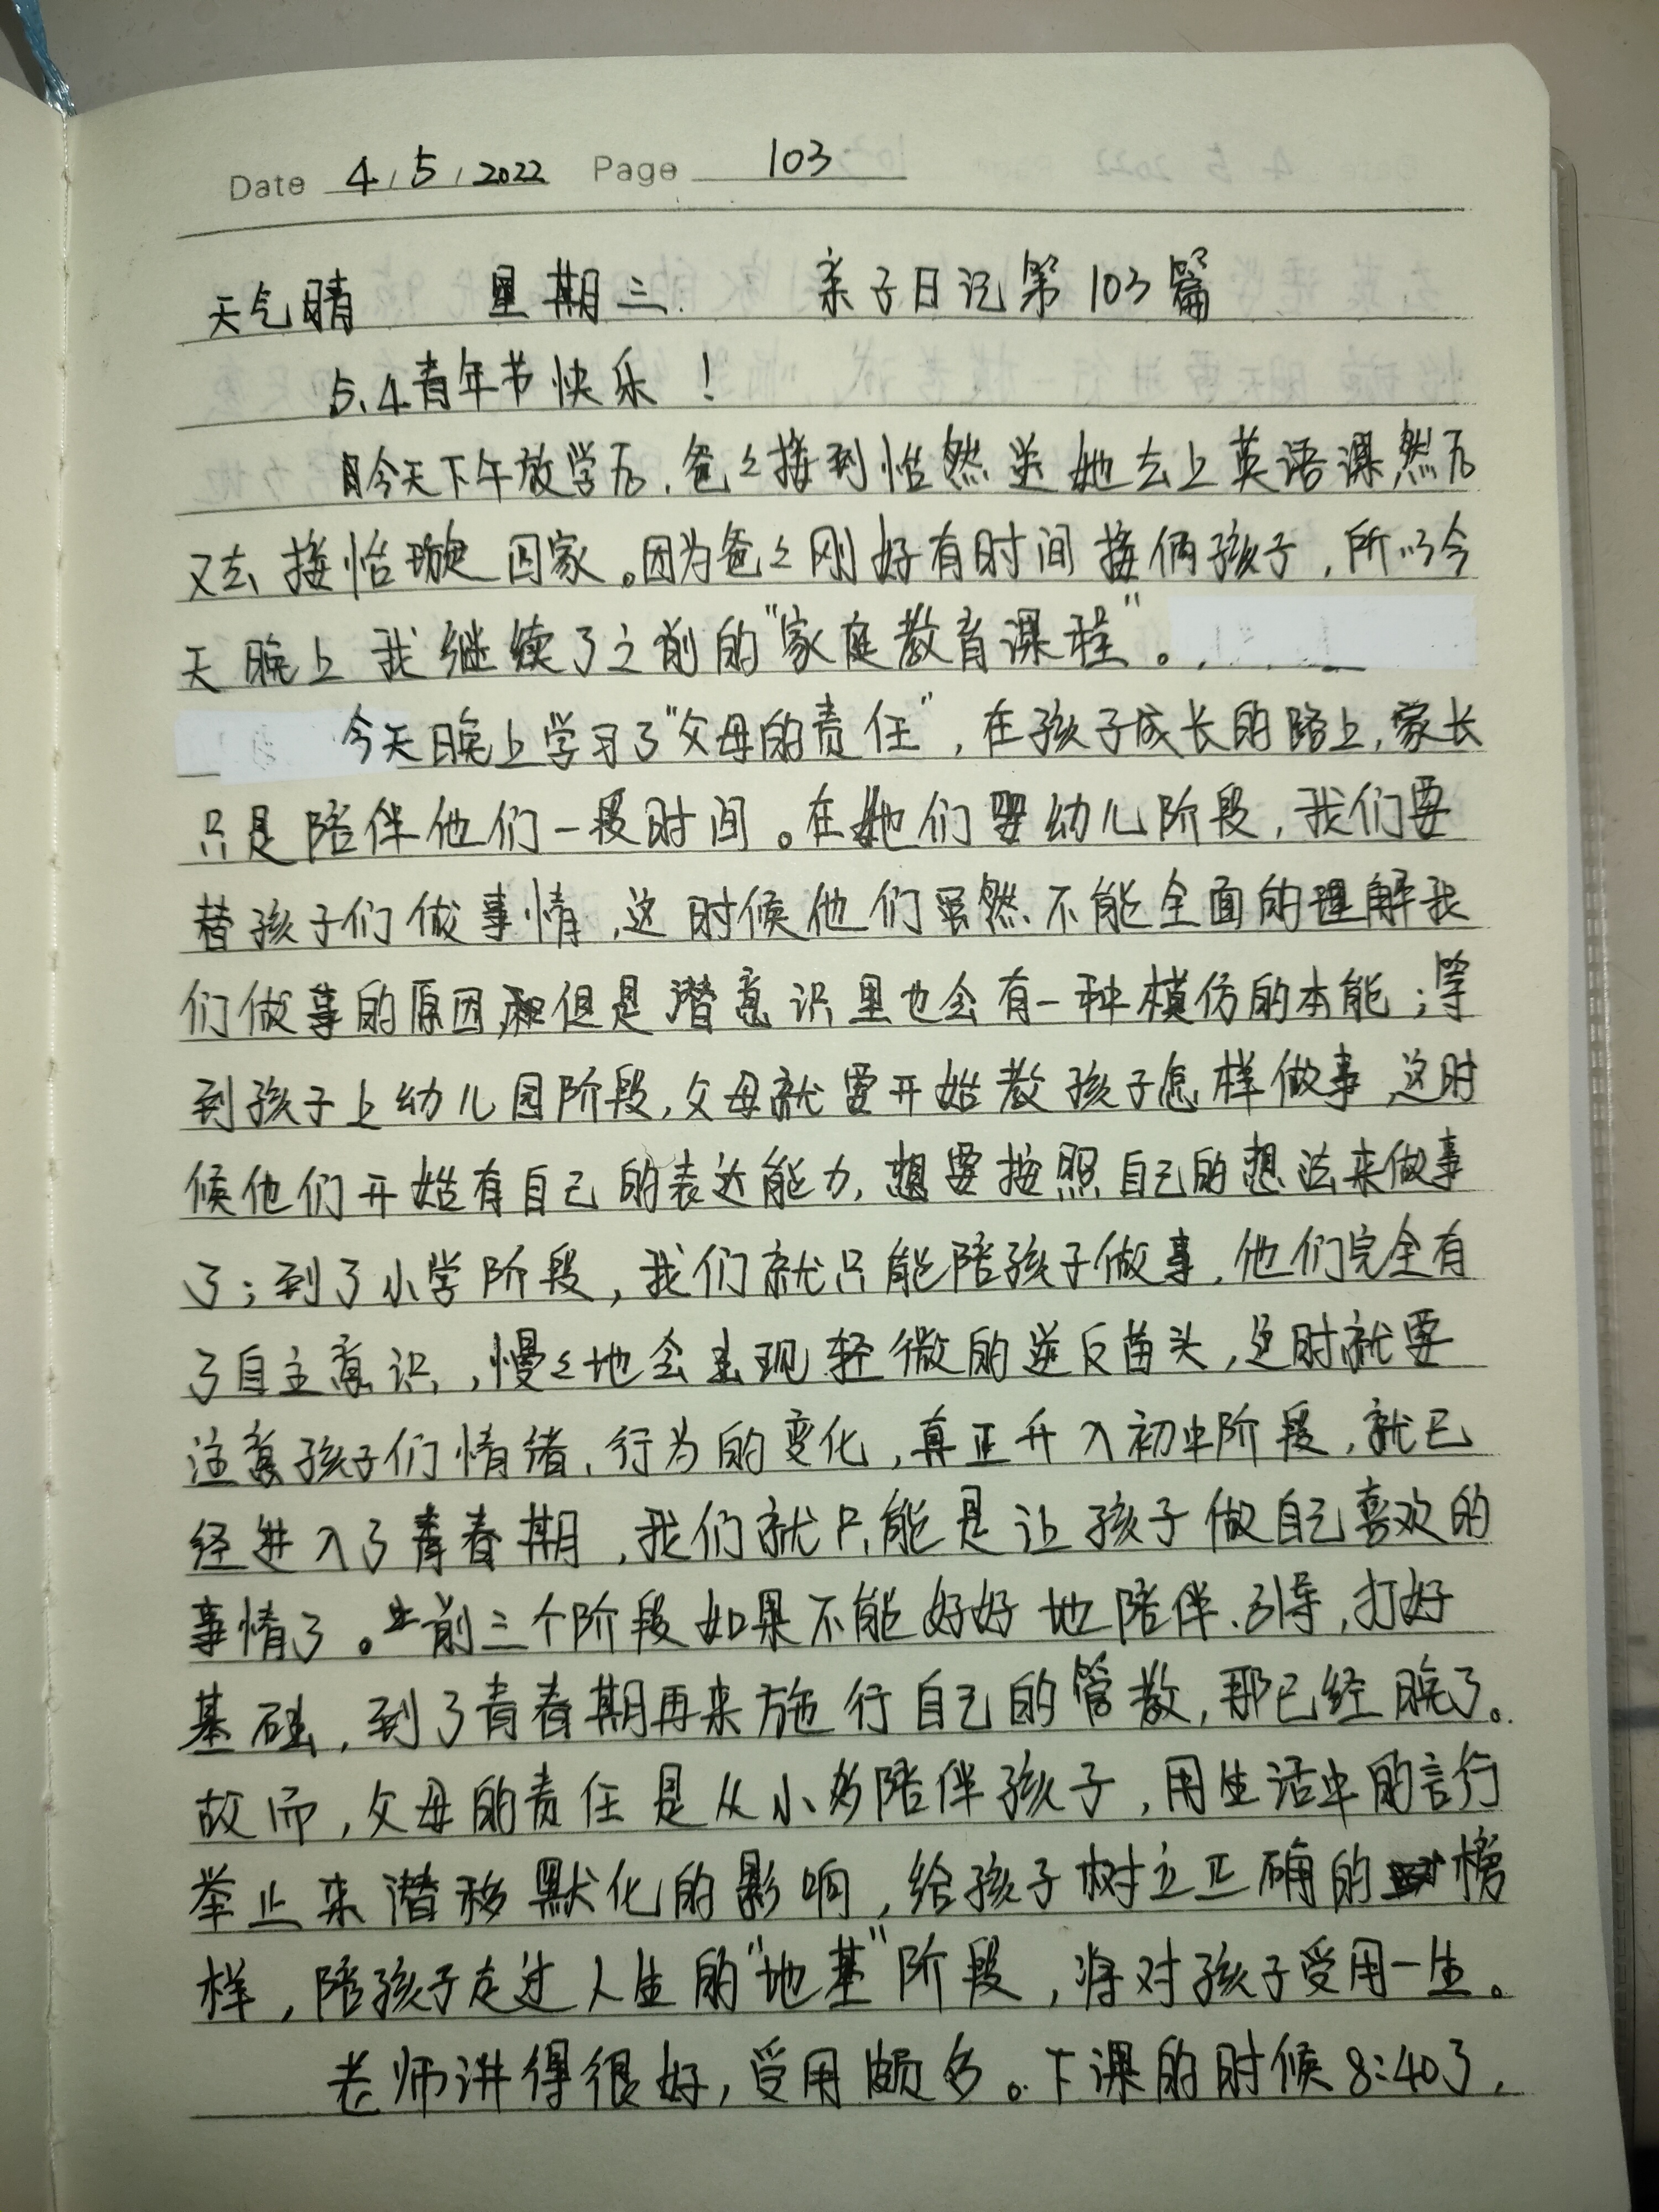 Date 4/5/2022 Page 103
天气晴 星期三. 亲子日记第103篇
5.4青年节快乐！
今天下午放学后,爸々接到怡然送她去上英语课,然后
又去接怡璇回家。因为爸々刚好有时间接俩孩子,所以今
天晚上我继续了之前的"家庭教育课程"。
今天晚上学习了"父母的责任",在孩子成长的路上,家长
只是陪伴他们一段时间。在她们婴幼儿阶段,我们要
替孩子们做事情,这时候他们虽然不能全面的理解我
们做事的原因,但是潜意识里也会有一种模仿的本能;等
到孩子上幼儿园阶段,父母就要开始教孩子怎样做事,这时
候他们开始有自己的表达能力,想要按照自己的想法来做事
了;到了小学阶段,我们就只能陪孩子做事,他们完全有
了自主意识,慢々地会出现轻微的逆反苗头,这时就要
注意孩子们情绪、行为的变化,真正升入初中阶段,就已
经进入了青春期,我们就只能是让孩子做自己喜欢的
事情了。前三个阶段如果不能好好地陪伴、引导,打好
基础,到了青春期再来施行自己的管教,那已经晚了。
故而,父母的责任是从小多陪伴孩子,用生活中的言行
举止来潜移默化的影响,给孩子树立正确的榜
样,陪孩子走过人生的"地基"阶段,将对孩子受用一生。
老师讲得很好,受用颇多。下课的时候8:40了,